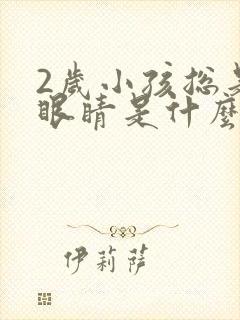 2歲小孩总是
眼睛是什麼
伊莉萨